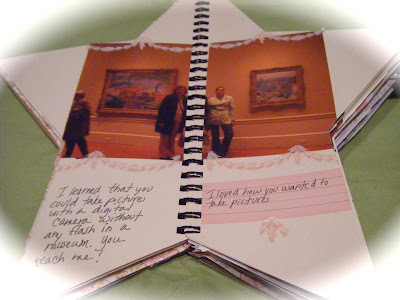 I learned that you
could take pictures
with a digital
camera without
any flash in a
museum. You
teach me!
I loved how you wanted to
take pictures